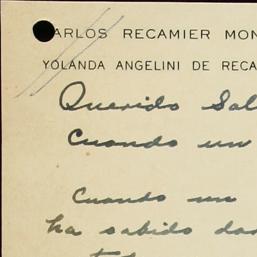 CARLOS RECAMIER MON
YOLANDA ANGELINI DE RECA
Querido Sal
Cuando un
Cuando un
ha sabido